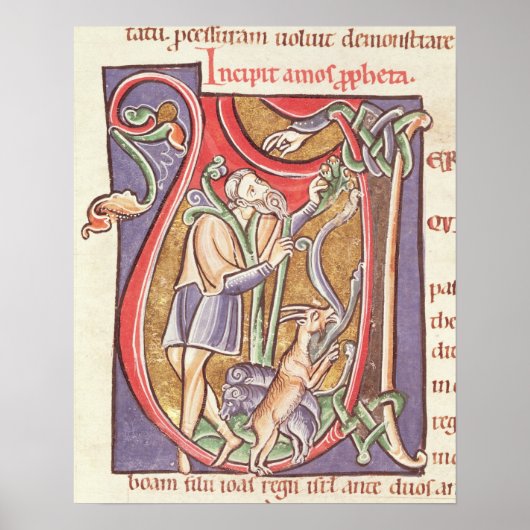 tatū pcessuram uoluit demonstrare
Incipit amos ppheta.
V
ER
QU
pa
the
in
reg
in
boam filii ioas regis isrl ante duos an